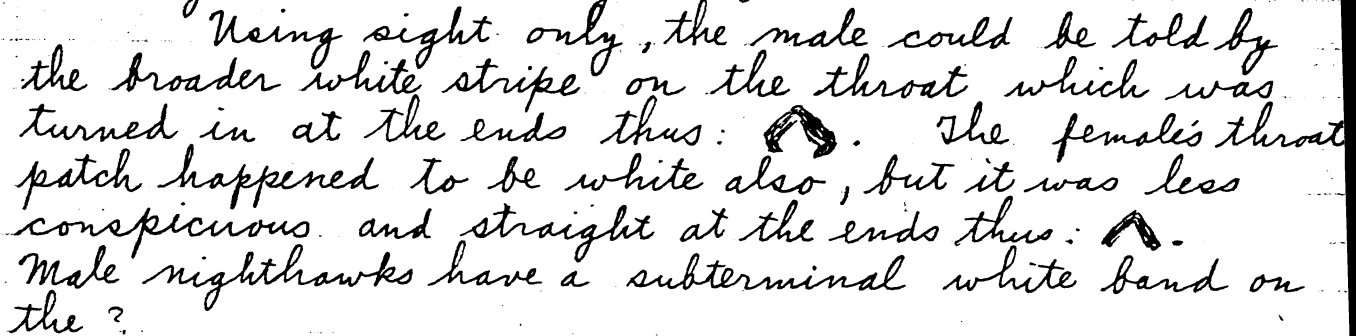 Using sight only, the male could be told by
the broader white stripe on the throat which was
turned in at the ends thus: . The female's throat
patch happened to be white also, but it was less
conspicuous and straight at the ends thus: .
Male nighthawks have a subterminal white band on
the ?